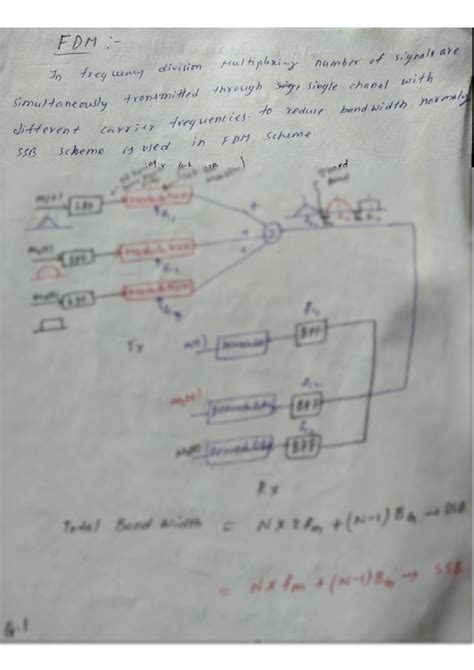 FDM :-
In frequency division multiplexing number of signals are
simultaneously transmitted through single chanal with
different carrier frequencies. to reduce bandwidth normaly
SSB scheme is used in FDM scheme.
guard
band
m1(t) LPF Modulation fc1
m2(t) LPF Modulation fc2
m3(t) LPF Modulation fc3
+
+
+
S
Tx
Demodulator BPF fc1
m2(t) Demodulator BPF fc2
Demodulator BPF
Rx
Total Band Width = N x 2fm + (N-1) BG → DSB
= N x fm + (N-1) BG → SSB